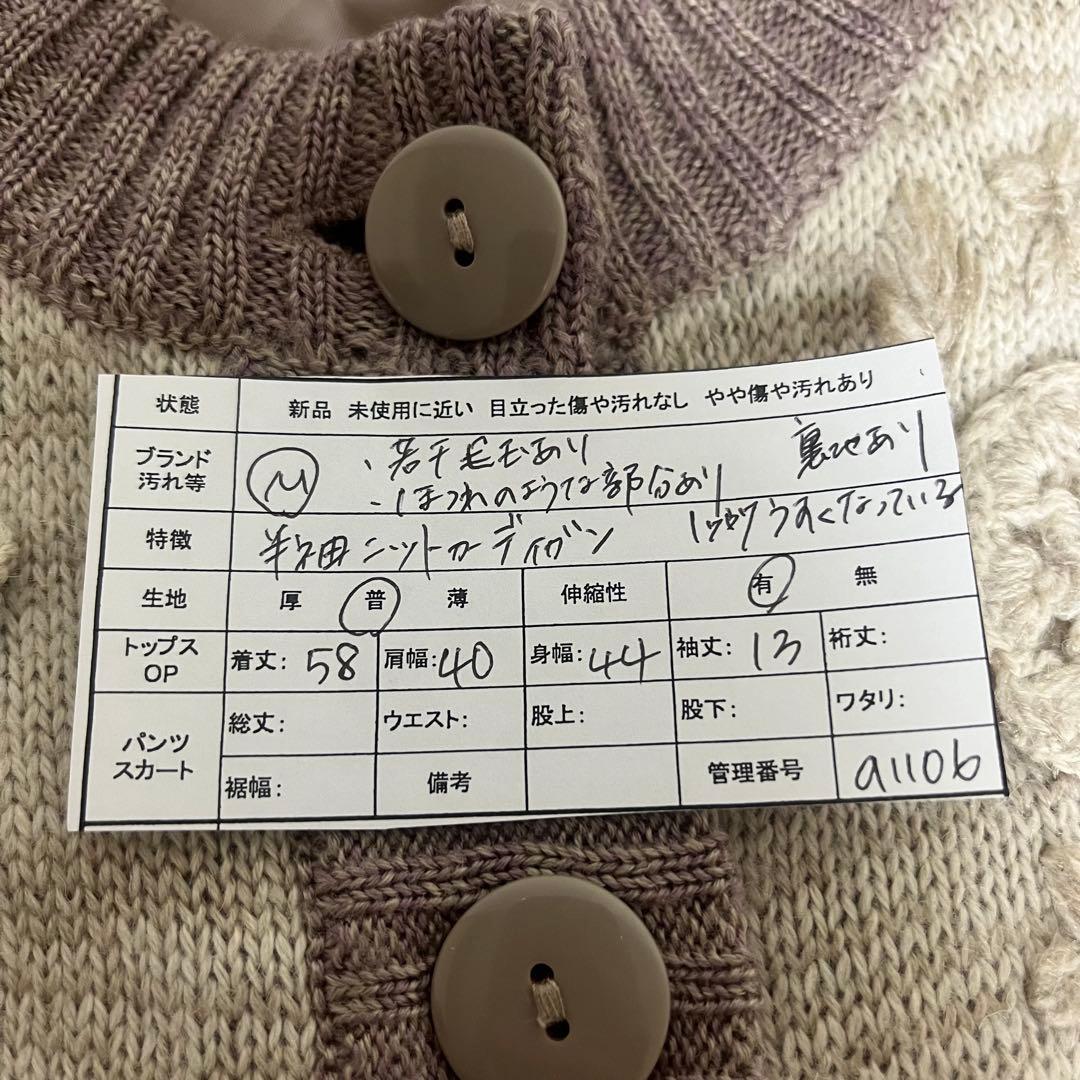 状態 新品 未使用に近い 目立った傷や汚れなし やや傷や汚れあり
ブランド 汚れ等 M ・若干毛玉あり 裏地あり
・ほつれのような部分あり
特徴 半袖ニットカーディガン うすくなっている
生地 厚 普 薄 伸縮性 有 無
トップス OP 着丈: 58 肩幅: 40 身幅: 44 袖丈: 13 裄丈:
パンツ スカート 総丈: ウエスト: 股上: 股下: ワタリ:
裾幅: 備考 管理番号 a1106